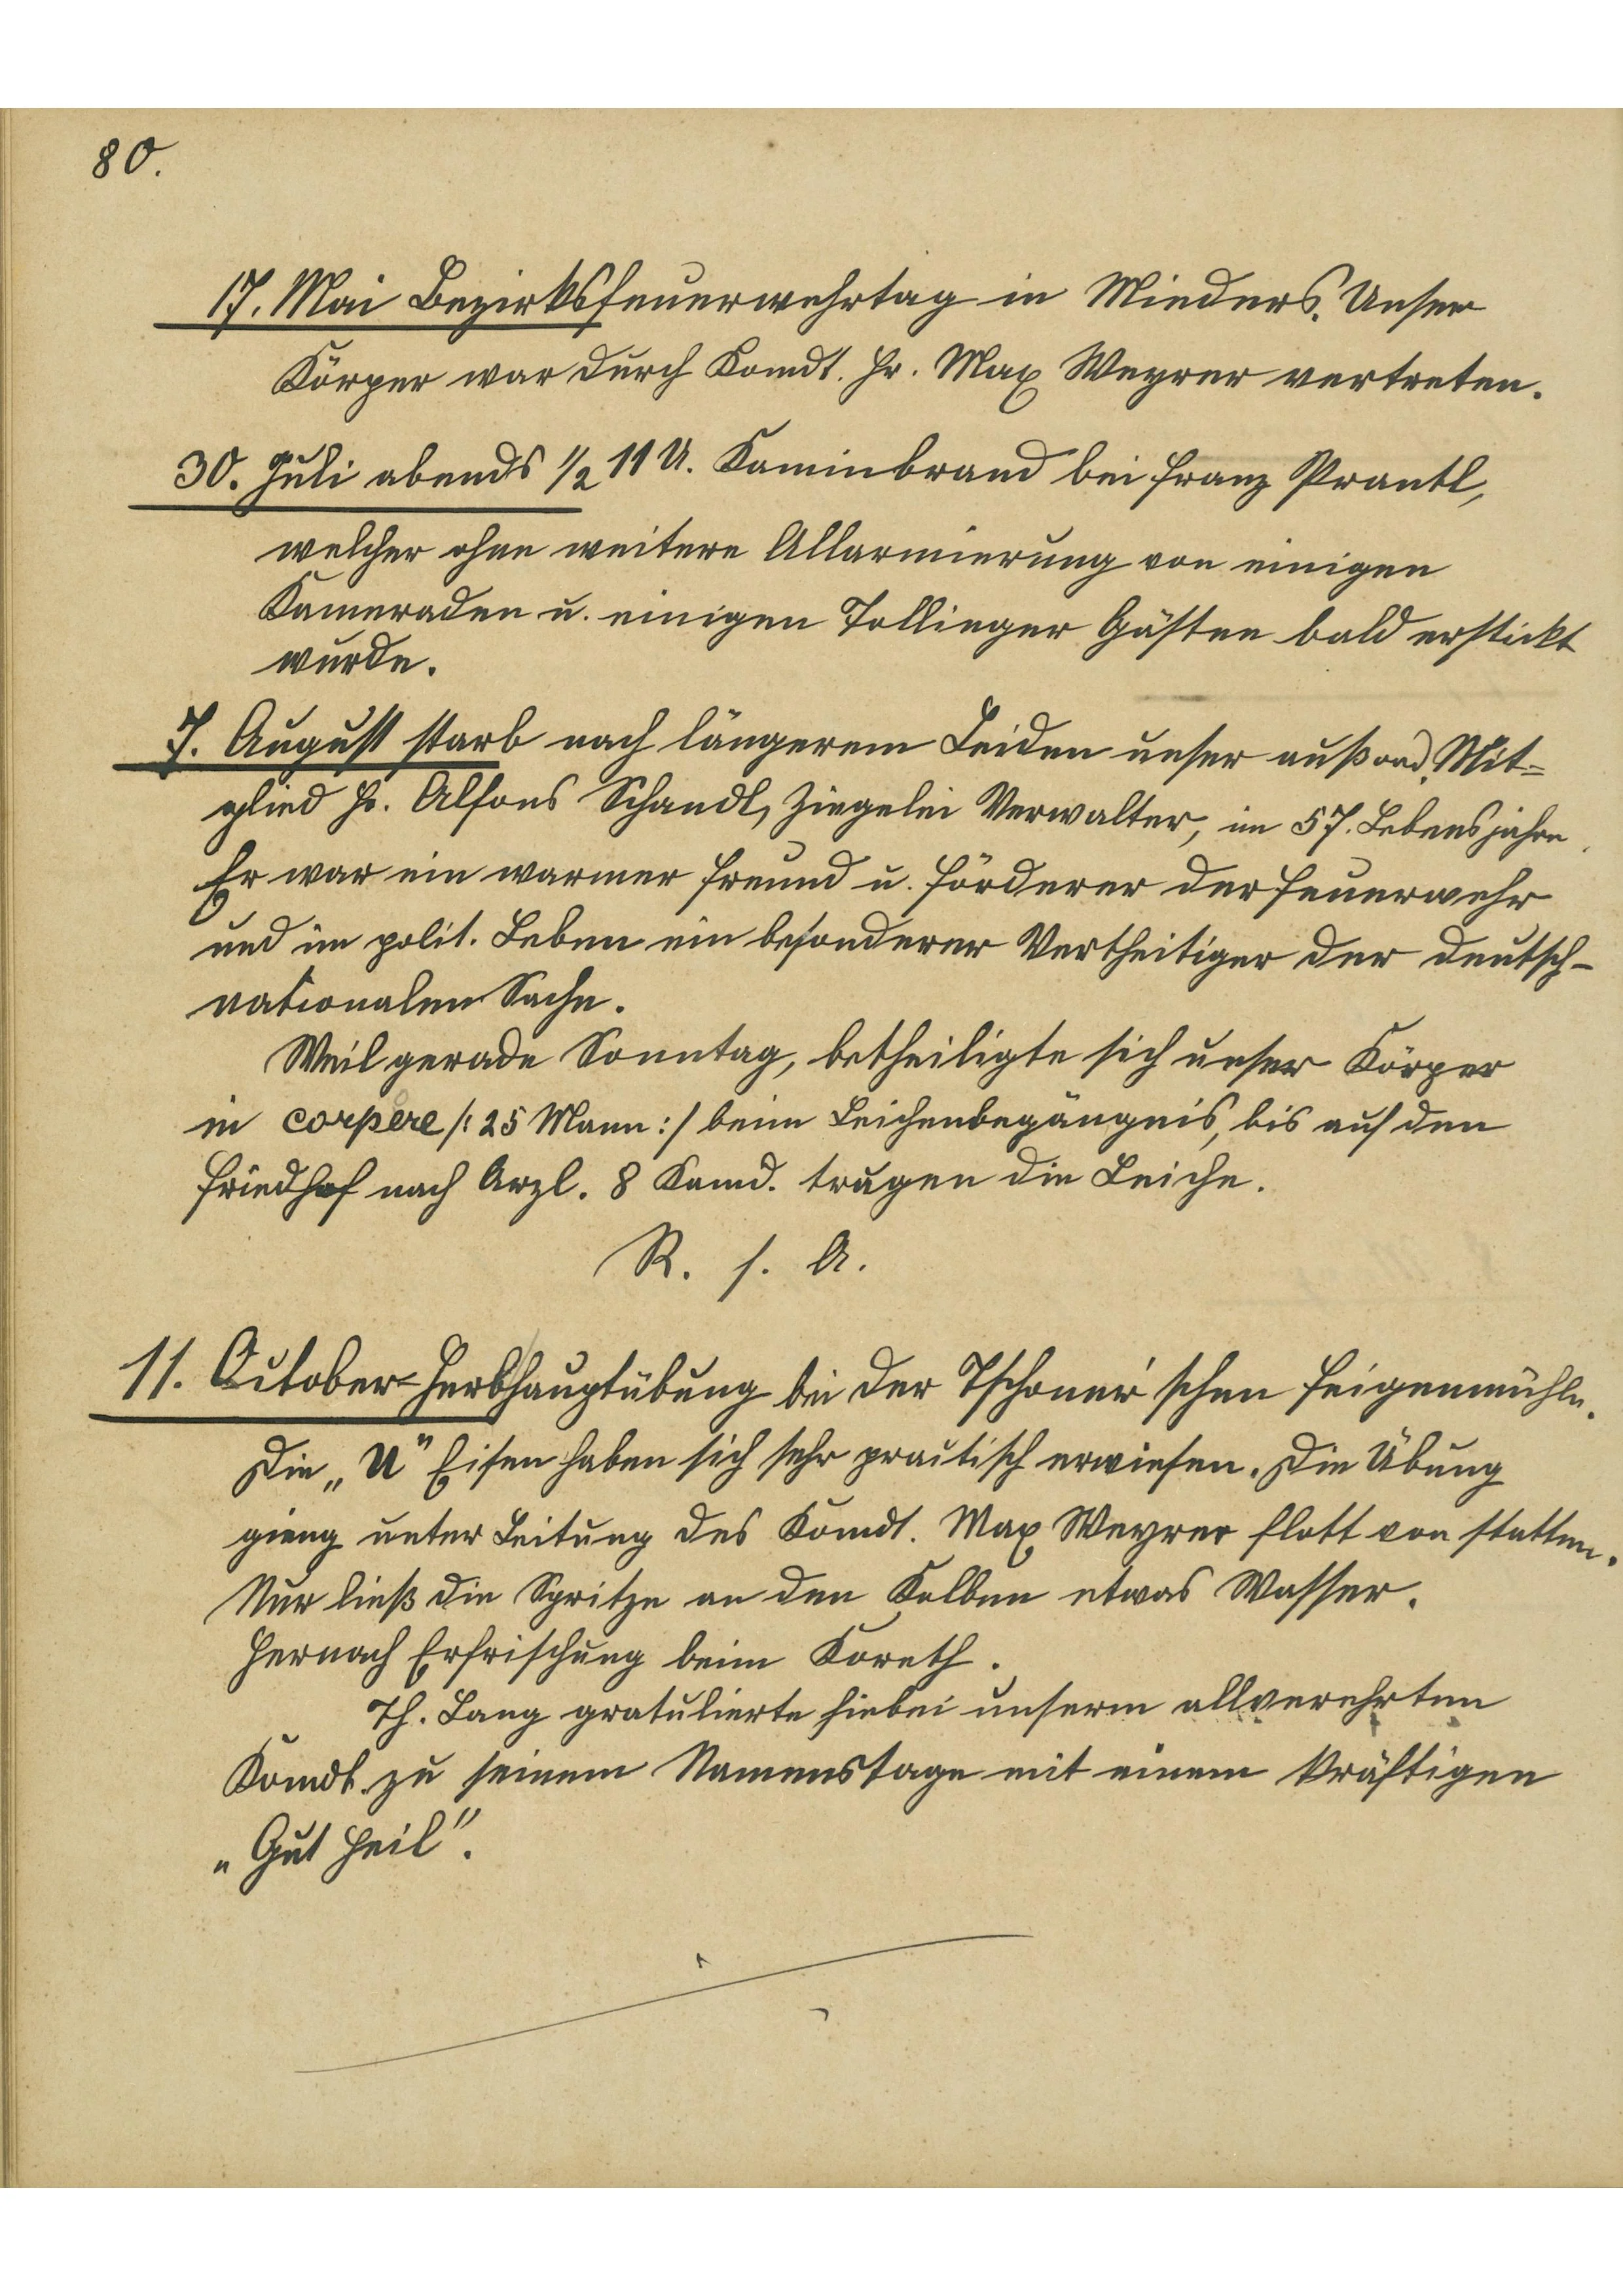 80.
17. Mai Bezirksfeuerwehrtag in Mieders. Unser
Körper war durch Komdt. Hr. Max Weyrer vertreten.
30. Juli abends 1/2 11 U. Kaminbrand bei Franz Prantl,
welcher ohne weitere Allarmierung von einigen
Kameraden u. einigen Tollinger Gästen bald erstickt
wurde.
7. August starb nach längerem Leiden unser außord. Mit=
glied Hr. Alfons Schandl, Ziegelei Verwalter, im 57. Lebensjahre.
Er war ein warmer Freund u. Förderer der Feuerwehr
und im polit. Leben ein besonderer Vertheitiger der deutsch-
nationalen Sache.
Weil gerade Sonntag, betheiligte sich unser Körper
in corpere /: 25 Mann :/ beim Leichenbegängnis, bis auf den
Friedhof nach Arzl. 8 Kamd. trugen die Leiche.
R. s. A.
11. October = Herbsthauptübung bei der Tschoner'schen Feigenmühle.
Die „U" Eisen haben sich sehr practisch erwiesen. Die Übung
gieng unter Leitung des Komdt. Max Weyrer flott von statten.
Nur ließ die Spritze an den Kolben etwas Wasser.
Hernach Erfrischung beim Koreth.
Th. Lang gratulierte hiebei unserm allverehrten
Komdt. zu seinem Namenstage mit einem kräftigen
„Gut Heil".